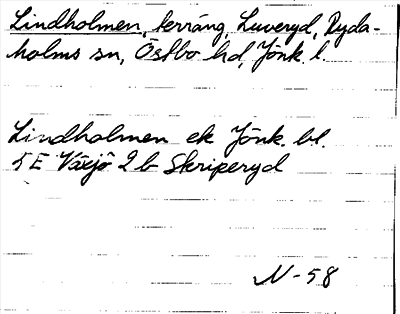 Lindholmen, terräng, Luveryd, Ryda-
holms sn, Östbo hd, Jönk. l.
Lindholmen ek Jönk. bl.
5 E Växjö 2 b Skriperyd
N-58